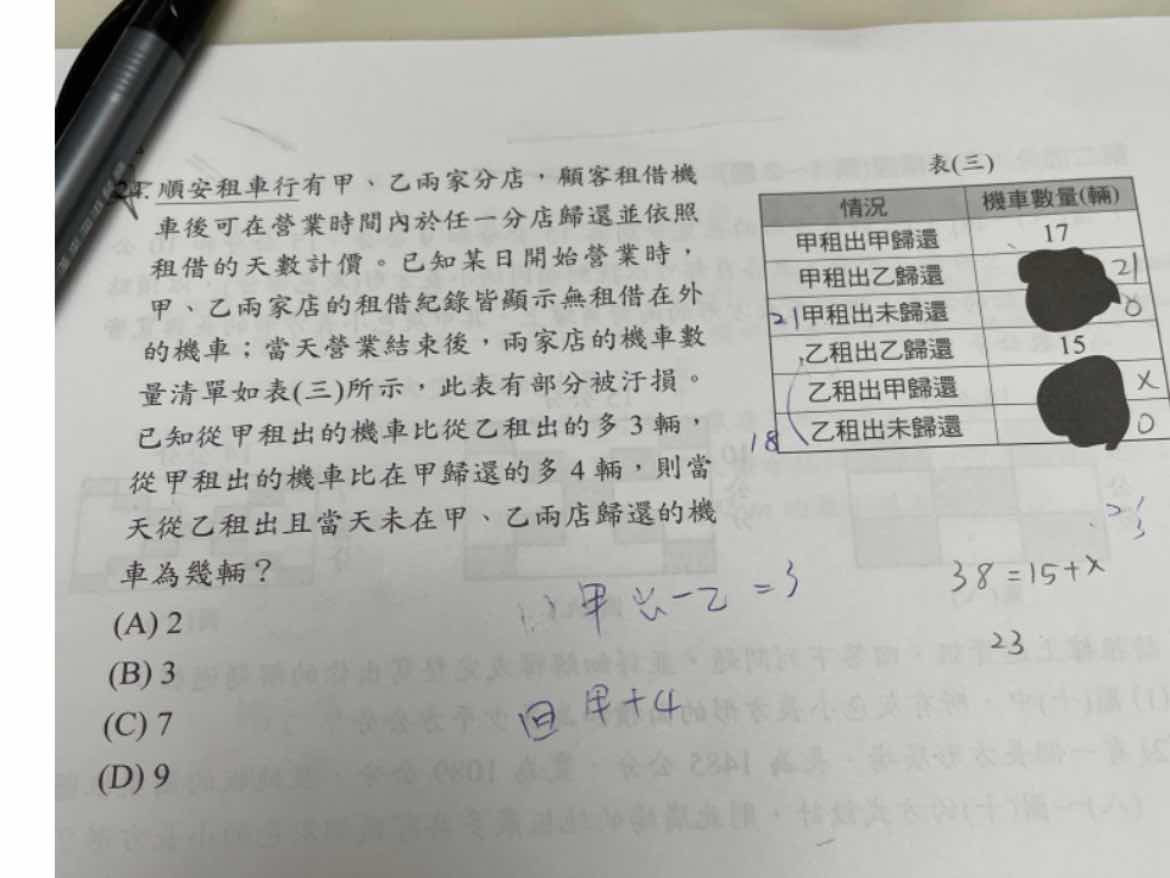 24. 順安租車行有甲、乙兩家分店，顧客租借機
車後可在營業時間內於任一分店歸還並依照
租借的天數計價。已知某日開始營業時，
甲、乙兩家店的租借紀錄皆顯示無租借在外
的機車；當天營業結束後，兩家店的機車數
量清單如表(三)所示，此表有部分被汙損。
已知從甲租出的機車比從乙租出的多 3 輛，
從甲租出的機車比在甲歸還的多 4 輛，則當
天從乙租出且當天未在甲、乙兩店歸還的機
車為幾輛？
(A) 2
(B) 3
(C) 7
(D) 9
表(三)
情況 機車數量(輛)
甲租出甲歸還 17
甲租出乙歸還 21
21 甲租出未歸還 0
乙租出乙歸還 15
乙租出甲歸還 x
18 乙租出未歸還 0
38 = 15 + x
23
= 3
甲 + 4